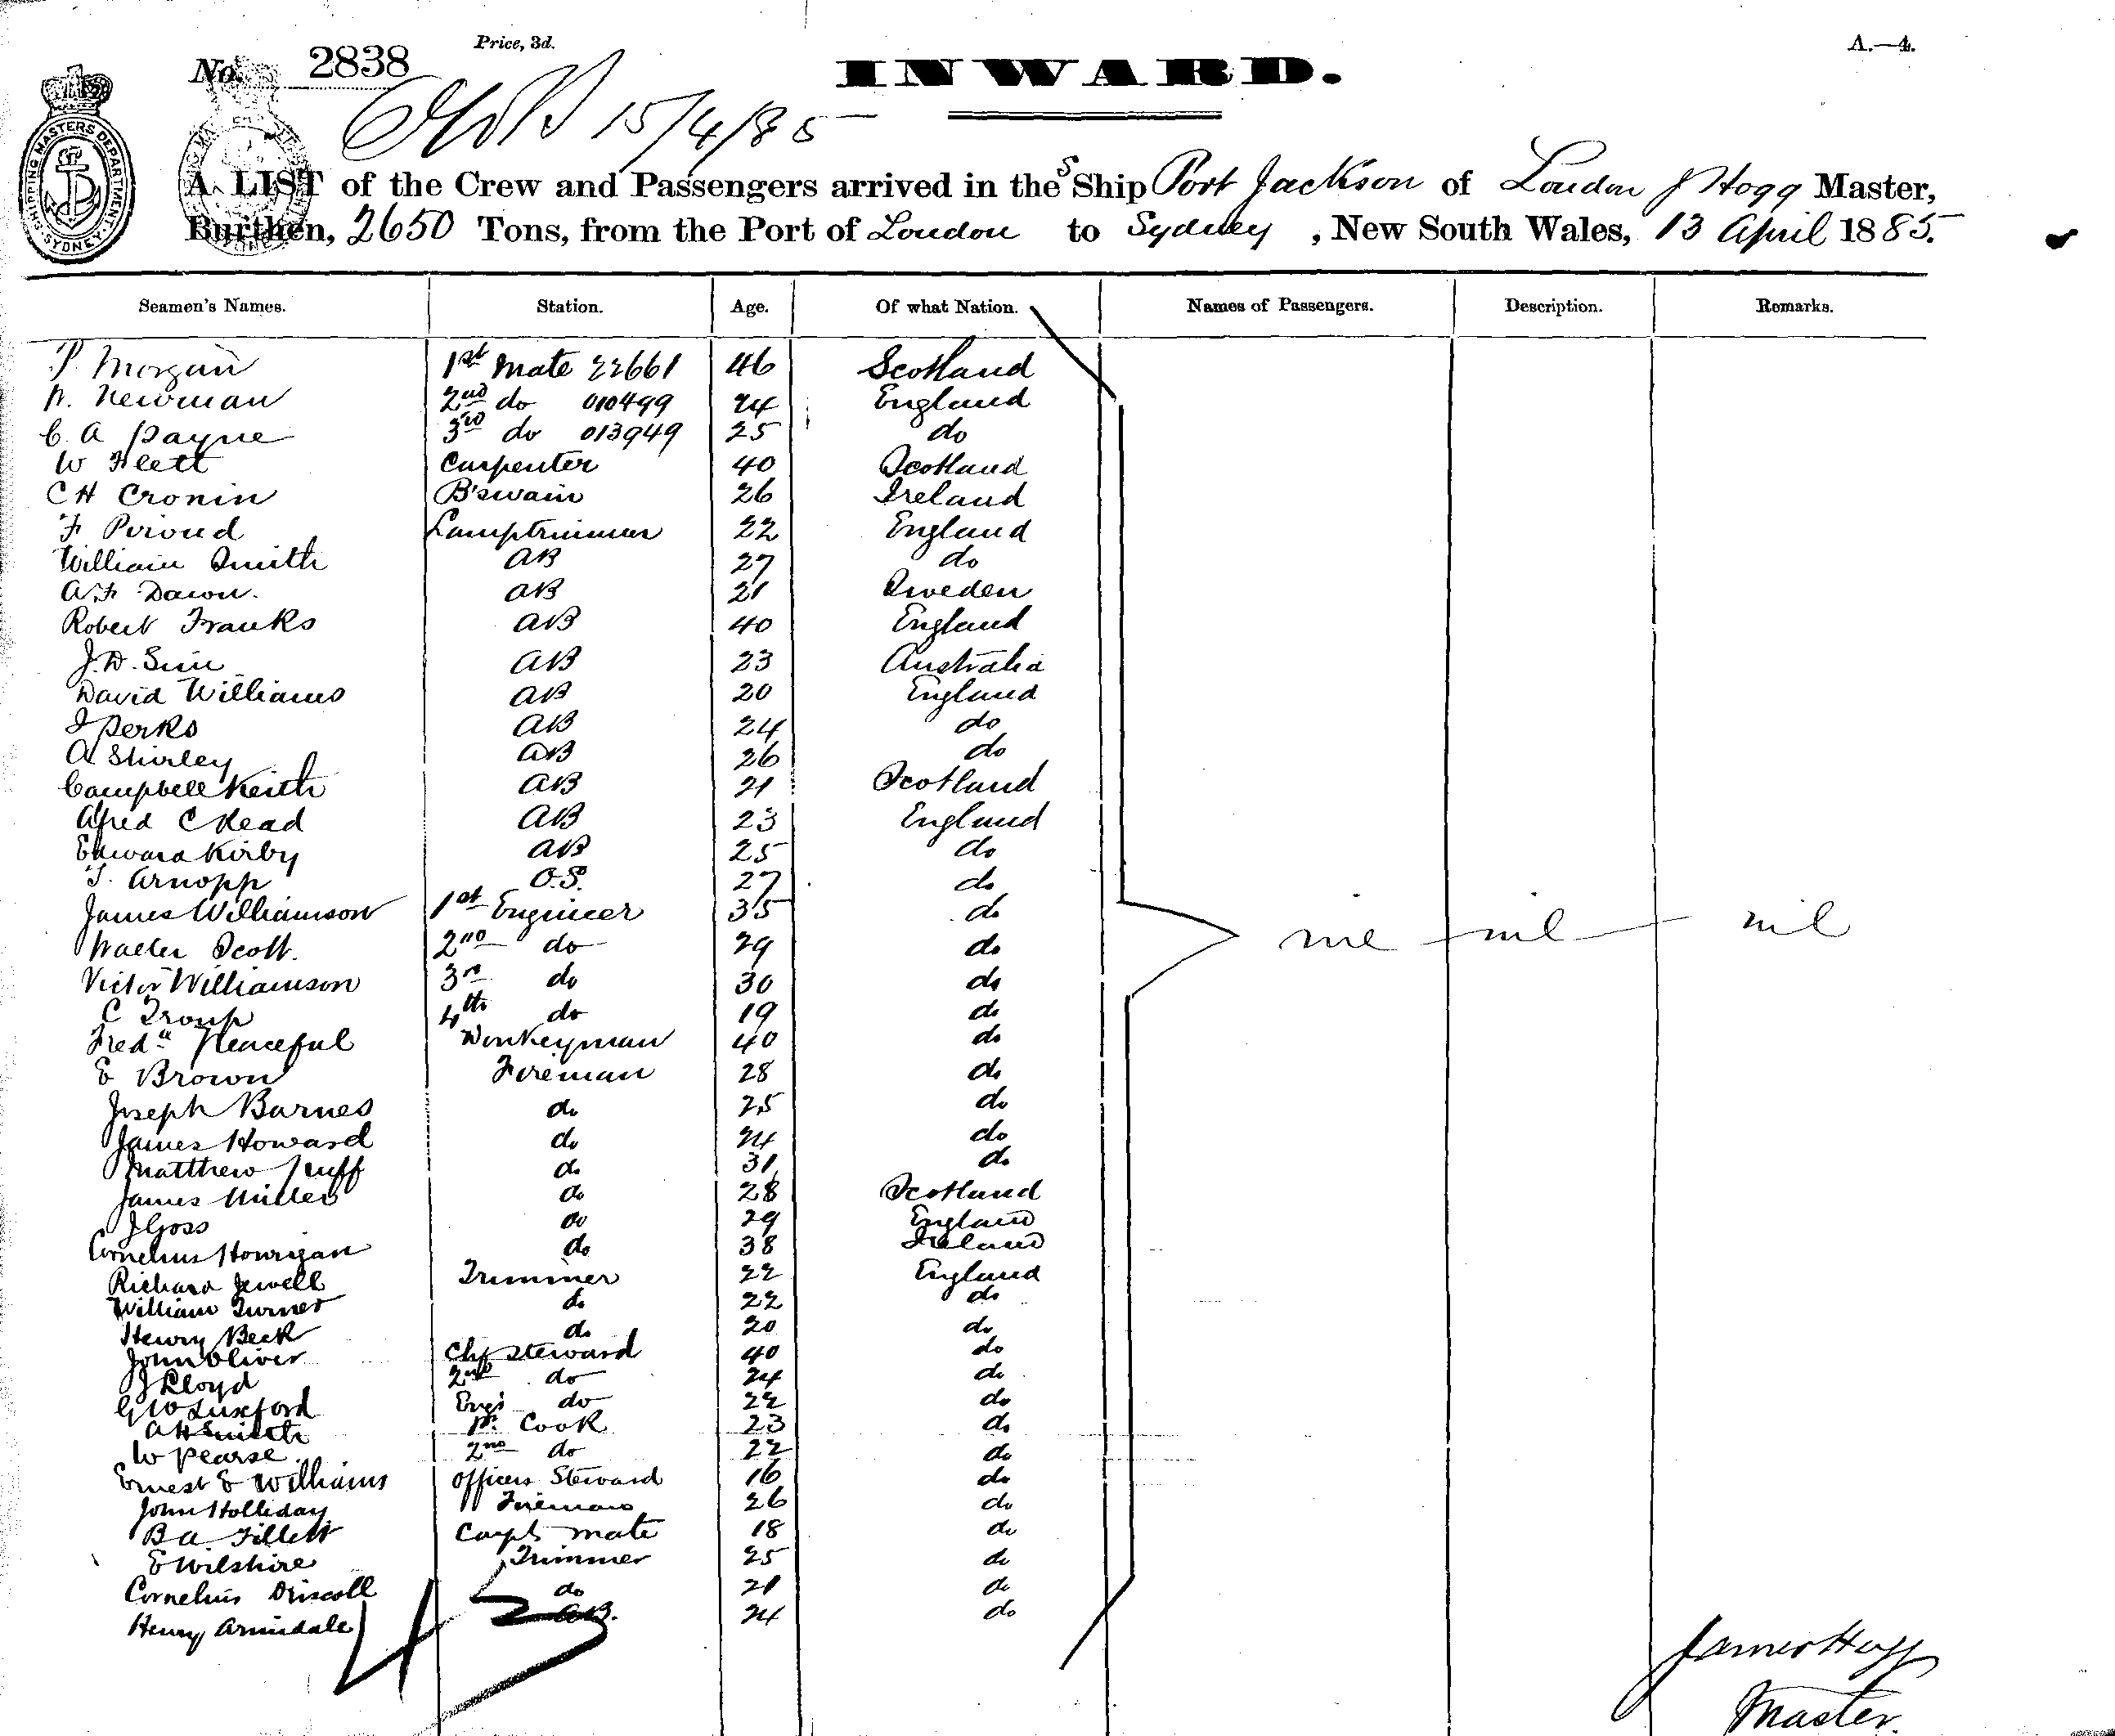 Price, 3d.
A.—4.
No. 2838
INWARD.
15/4/85
SHIPPING MASTERS DEPARTMENT SYDNEY
A LIST of the Crew and Passengers arrived in the SShip Port Jackson of London J Hogg Master,
Burthen, 2650 Tons, from the Port of London to Sydney, New South Wales, 13 April 1885.
Seamen's Names. Station. Age. Of what Nation. Names of Passengers. Description. Remarks.
Morgan 1st Mate 22661 46 Scotland
Newman 2nd do 010499 24 England
C. A Payne 3rd do 013949 25 do
W Flett Carpenter 40 Scotland
C H Cronin B'swain 26 Ireland
F Peroud Lamptrimmer 22 England
William Smith AB 27 do
A F Dawn. AB 21 Sweden
Robert Franks AB 40 England
J. D. Sim AB 23 Australia
David Williams AB 20 England
Perks AB 24 do
A Shirley AB 26 do
Campbell Keith AB 21 Scotland
Alfred C Read AB 23 England
Edward Kirby AB 25 do
T. Arnopp O.S. 27 do
James Williamson 1st Engineer 35 do
Walter Scott. 2nd do 29 do
nil nil nil
Victor Williamson 3rd do 30 do
C Troup 4th do 19 do
Fredk Peaceful Donkeyman 40 do
E Brown Fireman 28 do
Joseph Barnes do 25 do
James Howard do 24 do
Matthew do 31 do
James Miller do 28 Scotland
J Goss do 29 England
Cornelius Hourigan do 38 Ireland
Richard Jewell Trimmer 22 England
William Turner do 22 do
Henry Beck do 20 do
John Oliver Chf Steward 40 do
J Lloyd 2nd do 24 do
G W Luxford Engs do 22 do
A H Smith Cook 23 do
W Pearse 2nd do 22 do
Ernest E Williams Officers Steward 16 do
John Holliday Fireman 26 do
B A. Fillett Carpts mate 18 do
E Wilshire Trimmer 25 do
Cornelius Driscoll do 21 do
Henry Armidale AB. 24 do
43
James Hogg
Master.